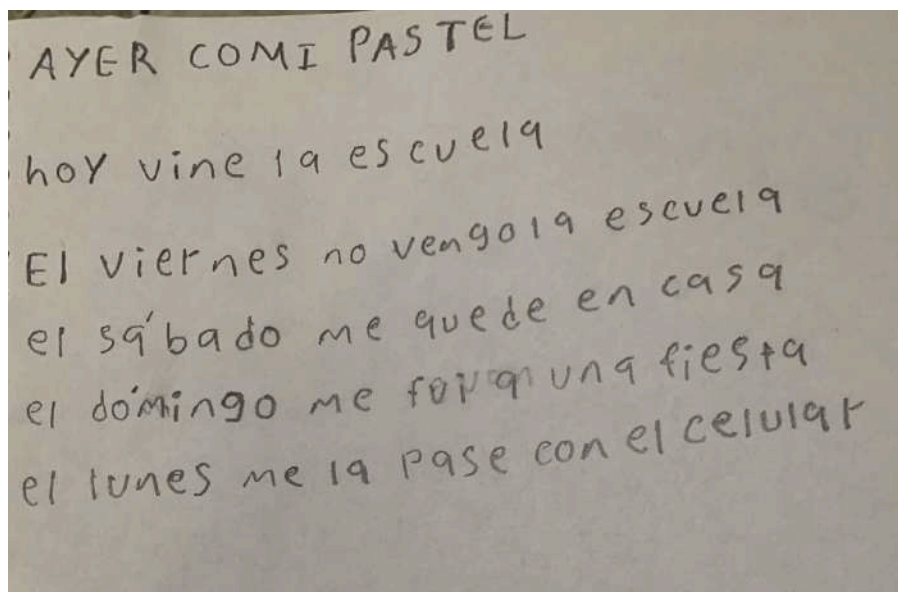 AYER COMI PASTEL
hoy vine la escuela
El viernes no vengo la escuela
el sábado me quede en casa
el dómingo me fui a una fiesta
el lunes me la pase con el celular